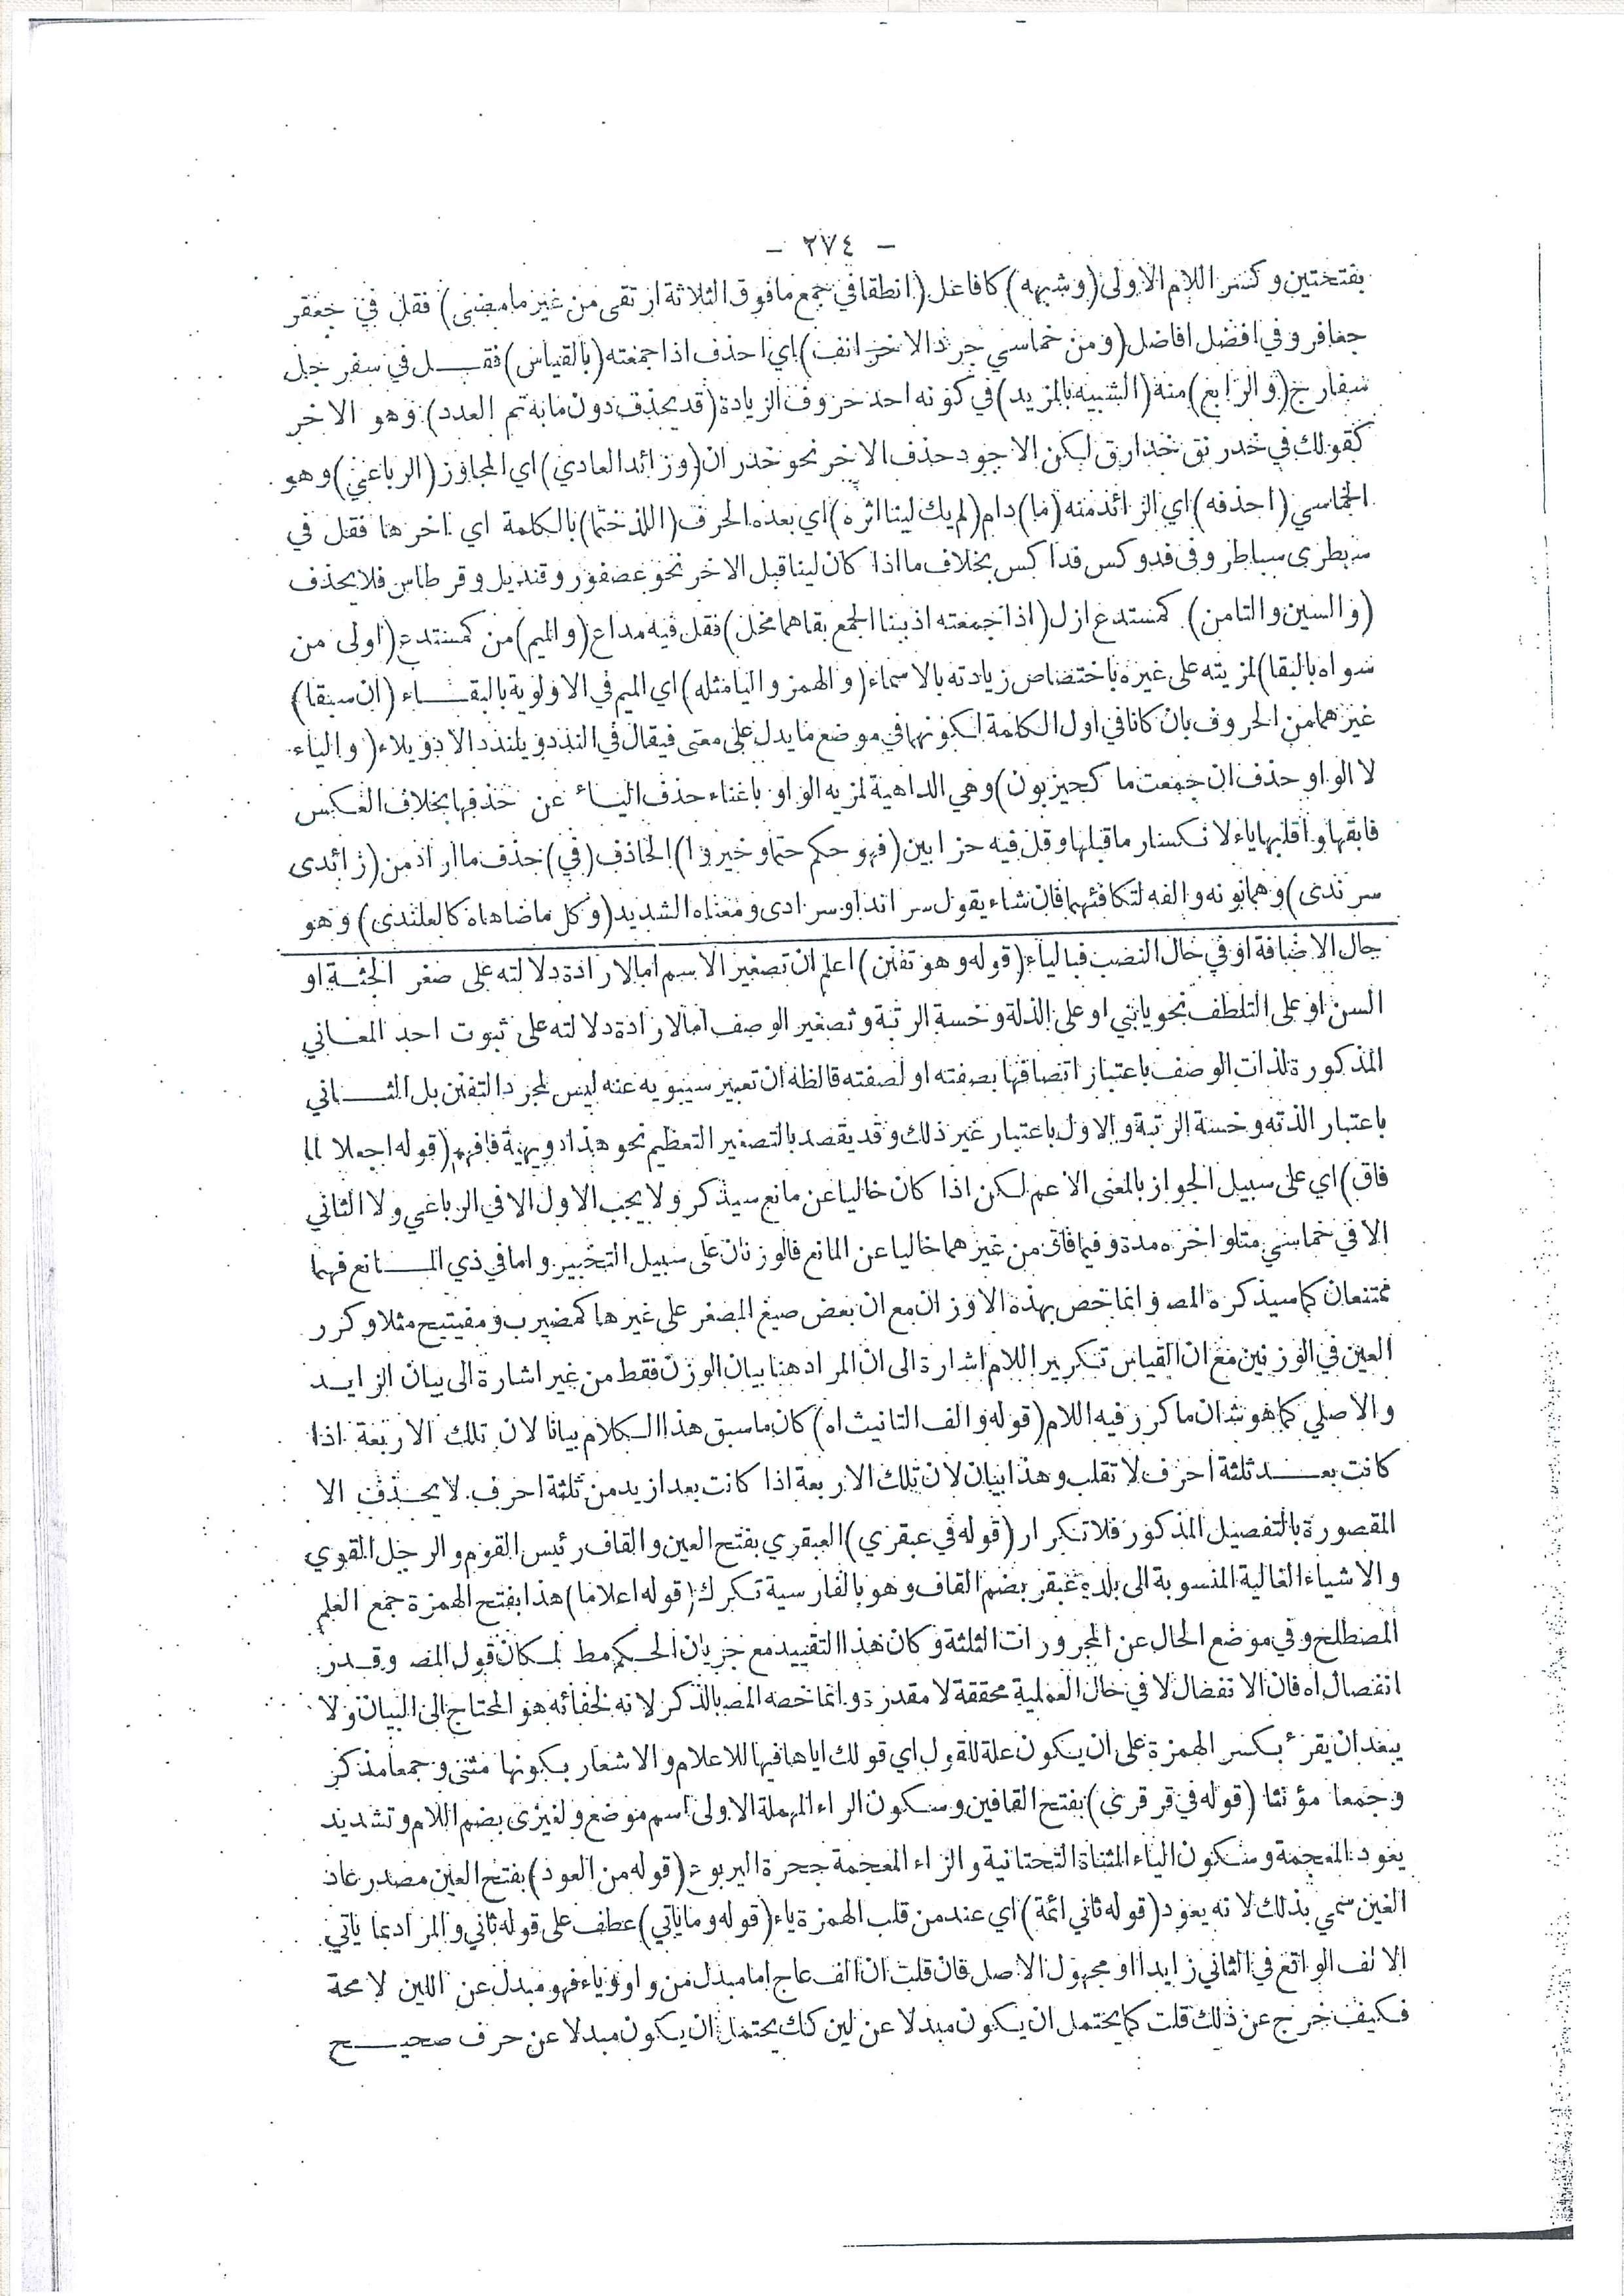 – ٢٧٤ –
بفتحتين وكسر اللام الاولى (وشبهه) كافاعل (انطقا في جمع مافوق الثلاثة ارتقى من غير مامضى) فقل في جعفر
جعافر وفي افضل افاضل (ومن خماسي جرد الاخر انف) اي احذف اذا جمعته (بالقياس) فقـــل في سفرجل
سفارج (والرابع) منه (الشبيه بالمزيد) في كونه احد حروف الزيادة (قد يحذف دون مابه تم العدد) وهو الاخر
كقولك في خدرنق خدارق لكن الاجود حذف الاخر نحو خدران (وزائد العادي) اي المجاوز (الرباعي) وهو
الخماسي (احذفه) اي الزائد منه (ما) دام (لم يك لينا اثره) اي بعده الحرف (اللذ ختما) بالكلمة اي اخرها فقل في
سبطرى سباطر وفى فدوكس فداكس بخلاف مااذا كان لينا قبل الاخر نحو عصفور وقنديل وقرطاس فلا يحذف
(والسين والتا من) كمستدع ازل (اذا جمعته اذ ببنا الجمع بقاهما مخل) فقل فيه مداع (والميم) من كمستدع (اولى من
سواه بالبقا) لمزيته على غيره باختصاص زيادته بالاسماء (والهمز واليا مثله) اي الميم في الاولوية بالبقـــاء (ان سبقا)
غيرهما من الحروف بان كانا في اول الكلمة لكونهما في موضع مايدل على معنى فيقال في الندد ويلندد الاد ويلاد (والياء
لا الواو حذف ان جمعت ما كحيزبون) وهي الداهية لمزيه الواو باغناء حذف اليـاء عن حذفها بخلاف العكس
فابقها واقلبها ياء لانكسار ماقبلها وقل فيه حزابين (فهو حكم حتما وخيروا) الحاذف (في) حذف ماارادمن (زائدى
سرندى) وهما نونه والفه لتكافئهما فان شاء يقول سراند او سرادى ومعناه الشديد (وكل ماضاهاه كالعلندى) وهو
حال الاضافة او في حال النصب فبالياء (قوله وهو تفنن) اعلم ان تصغير الاسم اما لارادة دلالته على صغر الجثــة او
السن او على التلطف نحو يابني او على الذلة وخسة الرتبة وتصغير الوصف اما لارادة دلالته على ثبوت احد المعـاني
المذكورة لذات الوصف باعتبار اتصافها بصفته او لصفته قالظه ان تعبير سيبويه عنه ليس لمجرد التفنن بل الثــاني
باعتبار الذته وخسة الرتبة والاول باعتبار غير ذلك وقد يقصد بالتصغير التعظيم نحو هذا دويهية فافهم (قوله اجعلا لما
فاق) اي على سبيل الجواز بالمعنى الاعم لكن اذا كان خاليا عن مانع سيذكر ولا يجب الاول الا في الرباعي ولا الثاني
الا في خماسي متلو اخره مدة وفيما فاق من غيرهما خاليا عن المانع فالوزنان على سبيل التخيير واما في ذي المـــانع فهما
ممتنعان كما سيذكره المص وانما خص بهذه الاوزان مع ان بعض صيغ المصغر على غيرها كمضيرب ومفيتيح مثلا وكرر
العين في الوزنين مع ان القياس تكرير اللام اشارة الى ان المراد هنا بيان الوزن فقط من غير اشارة الى بيان الزايــد
والاصلي كما هو شان ما كرر فيه اللام (قوله والف التانيث اه) كان ماسبق هذا الكلام بيانا لان تلك الاربعة اذا
كانت بعـــد ثلثة احرف لا تقلب وهذا بيان لان تلك الاربعة اذا كانت بعد ازيد من ثلثة احرف لا يحــذف الا
المقصورة بالتفصيل المذكور فلا تكرار (قوله في عبقري) العبقري بفتح العين والقاف رئيس القوم والرجل القوي
والاشياء الغالية المنسوبة الى بلدة عبقر بضم القاف وهو بالفارسية تكرك (قوله اعلاما) هذا بفتح الهمزة جمع العلم
المصطلح وفي موضع الحال عن المجرورات الثلثة وكان هذا التقييد مع جريان الحكم مط لمكان قول المص وقــدر
انفصال اه فان الانفصال لا في حال العلمية محققة لا مقدرة وانما خصه المص بالذكر لانه لخفائه هو المحتاج الى البيان ولا
يبعد ان يقرء بكسر الهمزة على ان يكون علة للقول اي قولك اياها فيها للاعلام والاشعار بكونها مثنى وجمعا مذكر
وجمعا مؤنثا (قوله في قرقرى) بفتح القافين وسكون الراء المهملة الاولى اسم موضع ولغيزى بضم اللام وتشديد
يعود المعجمة وسكون الياء المثناة التحتانية والزاء المعجمة جحرة اليربوع (قوله من العود) بفتح العين مصدر عاد
الغين سمي بذلك لانه يعود (قوله ثاني ائمة) اي عند من قلب الهمزة ياء (قوله وما ياتي) عطف على قوله ثاني والمراد بما ياتي
الالف الواقع في الثاني زايدا او مجهول الاصل فان قلت ان الف عاج اما مبدل من واو وياء فهو مبدل عن اللين لا محة
فكيف خرج عن ذلك قلت كما يحتمل ان يكون مبدلا عن لين كك يحتمل ان يكون مبدلا عن حرف صحيـــح